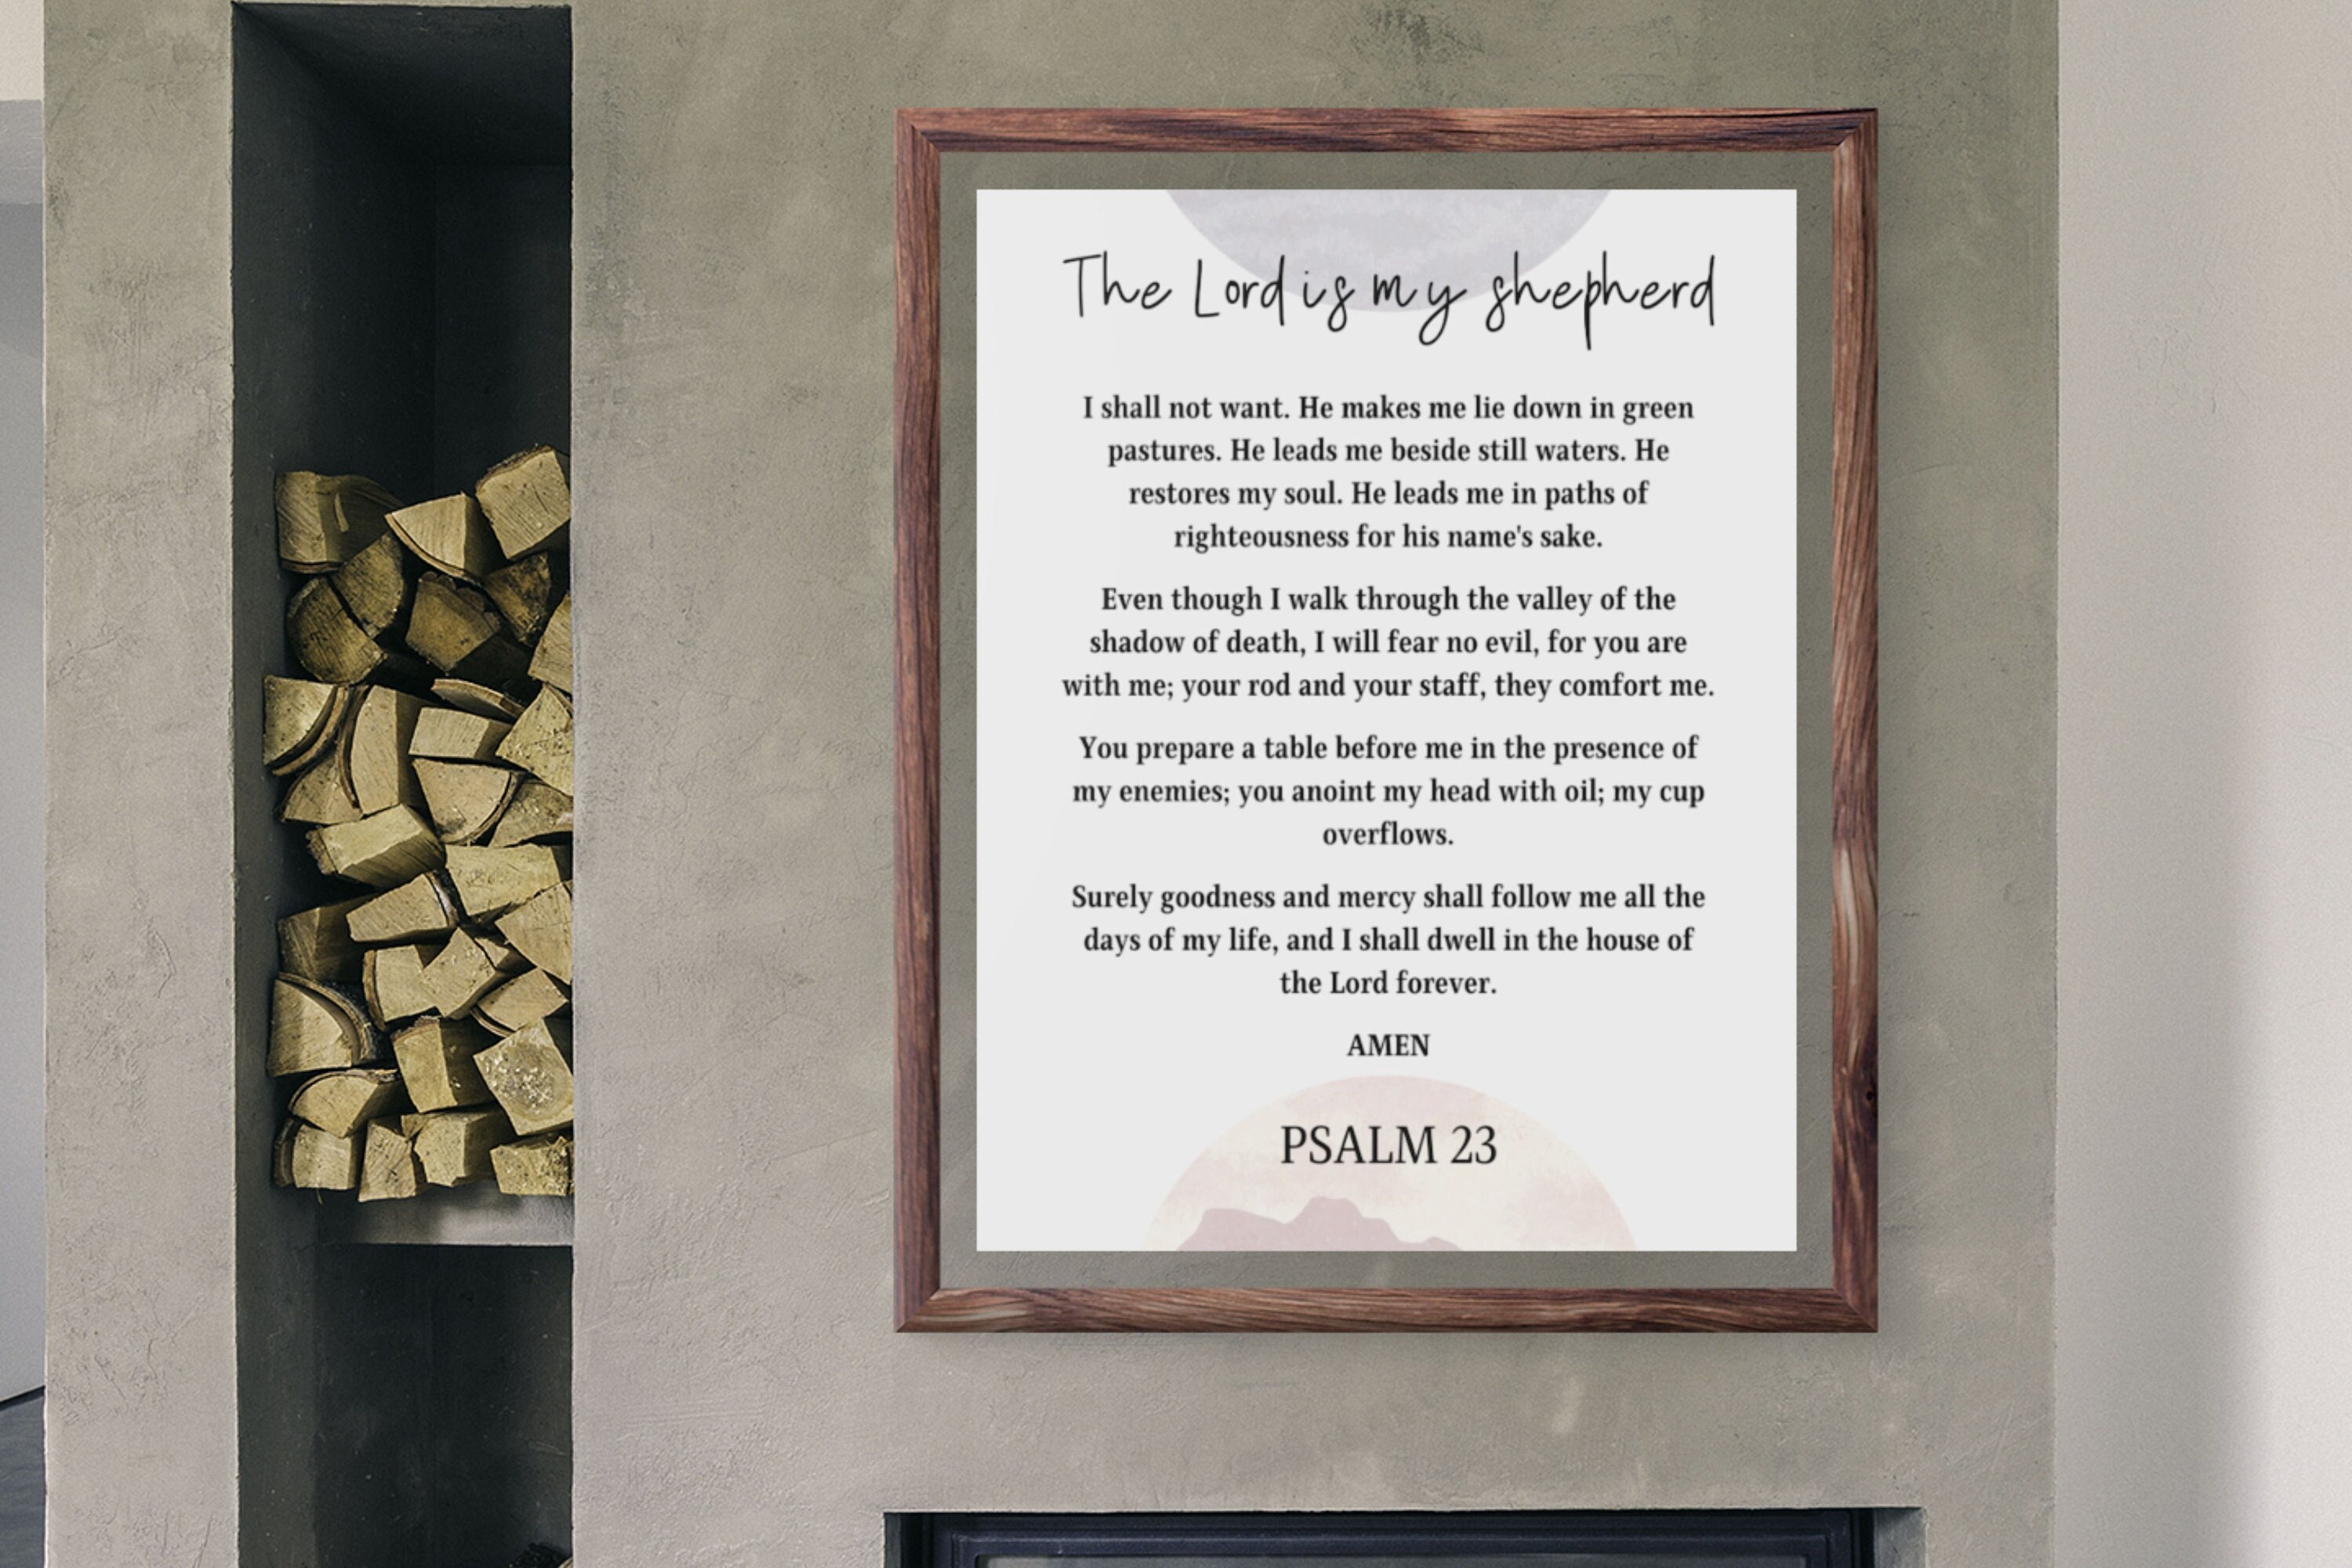 The Lord is my shepherd
I shall not want. He makes me lie down in green
pastures. He leads me beside still waters. He
restores my soul. He leads me in paths of
righteousness for his name's sake.
Even though I walk through the valley of the
shadow of death, I will fear no evil, for you are
with me; your rod and your staff, they comfort me.
You prepare a table before me in the presence of
my enemies; you anoint my head with oil; my cup
overflows.
Surely goodness and mercy shall follow me all the
days of my life, and I shall dwell in the house of
the Lord forever.
AMEN
PSALM 23